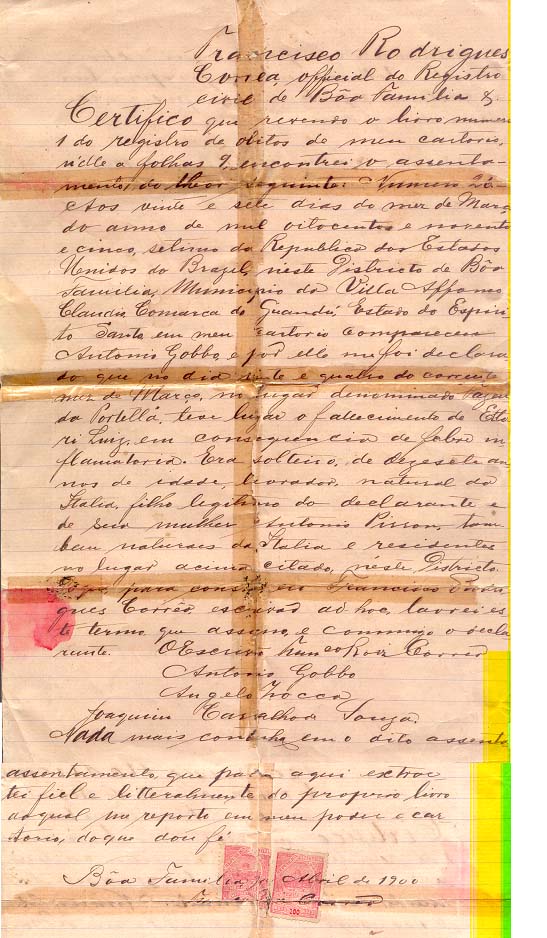 Francisco Rodrigues
Correa, official do Registro
civil de Bôa Familia &.
Certifico que revendo o livro numero
1 do registro de obitos de meu cartorio,
n'elle a folhas 9, encontrei o assenta-
mento do theor seguinte: Numero 26.
Aos vinte e sete dias do mez de Março
do anno de mil oitocentos e noventa
e cinco, setimo da Republica dos Estados
Unidos do Brazil, neste Districto de Bôa
Familia, Municipio do Villa Affonso
Claudio, Comarca do Guandú, Estado do Espiri-
to Santo em meu cartorio compareceu
Antonio Gobbo, e por elle me foi declara
do que no dia vinte e quatro do corrente
mez de Março, no lugar denominado Fazen
da Portella, teve lugar o fallecimento de Etto
ri Luiz, em consequencia de febre in
flamatoria. Era solteiro, de dezesete an
nos de idade, lavrador, natural da
Italia, filho legitimo do declarante e
de sua mulher Antonia tam
bem naturaes da Italia e residentes
no lugar acima citado, neste Districto.
E para constar eu Francisco Rodri
gues Corrêa, escrivão ad hoc, lavrei es
te termo que assigno, e commigo o decla
rante. O Escrivão Franco Roiz Corrêa
Antonio Gobbo
Angelo Zocca
Joaquim Carvalho Souza.
Nada mais continha em o dito assento
assentamento que para aqui extrac
tei fiel e litteralmente do proprio livro
do qual me reporto em meu poder e car
torio, do que dou fé
Bôa Familia, Abril de 1900
Corrêa